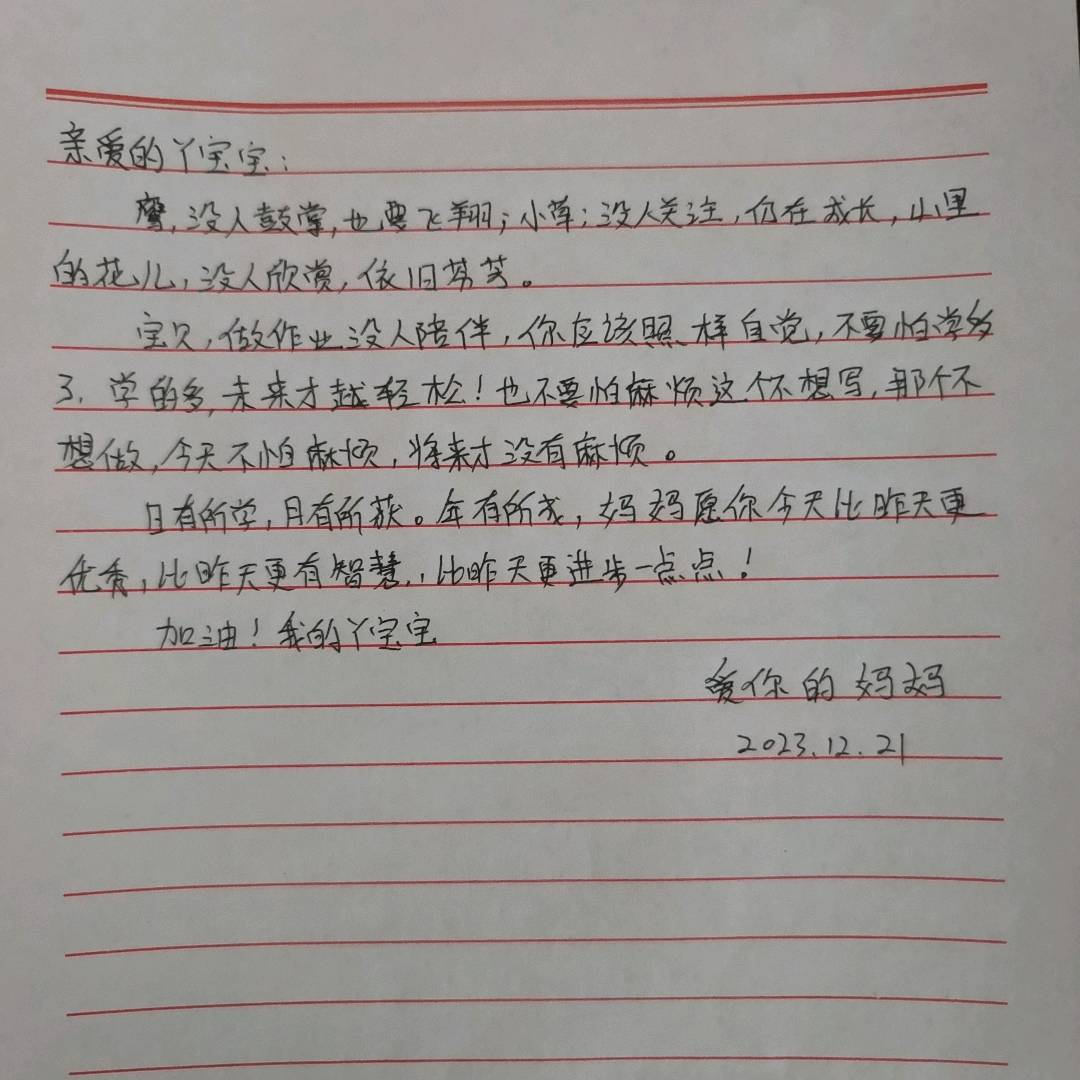 亲爱的丫宝宝：
鹰，没人鼓掌，也要飞翔；小草；没人关注，仍在成长，山里
的花儿，没人欣赏，依旧芬芳。
宝贝，做作业没人陪伴，你应该照样自觉，不要怕学多
了，学的多，未来才越轻松！也不要怕麻烦这个不想写，那个不
想做，今天不怕麻烦，将来才没有麻烦。
日有所学，月有所获。年有所成，妈妈愿你今天比昨天更
优秀，比昨天更有智慧，，比昨天更进步一点点！
加油！我的丫宝宝
爱你的妈妈
2023.12.21